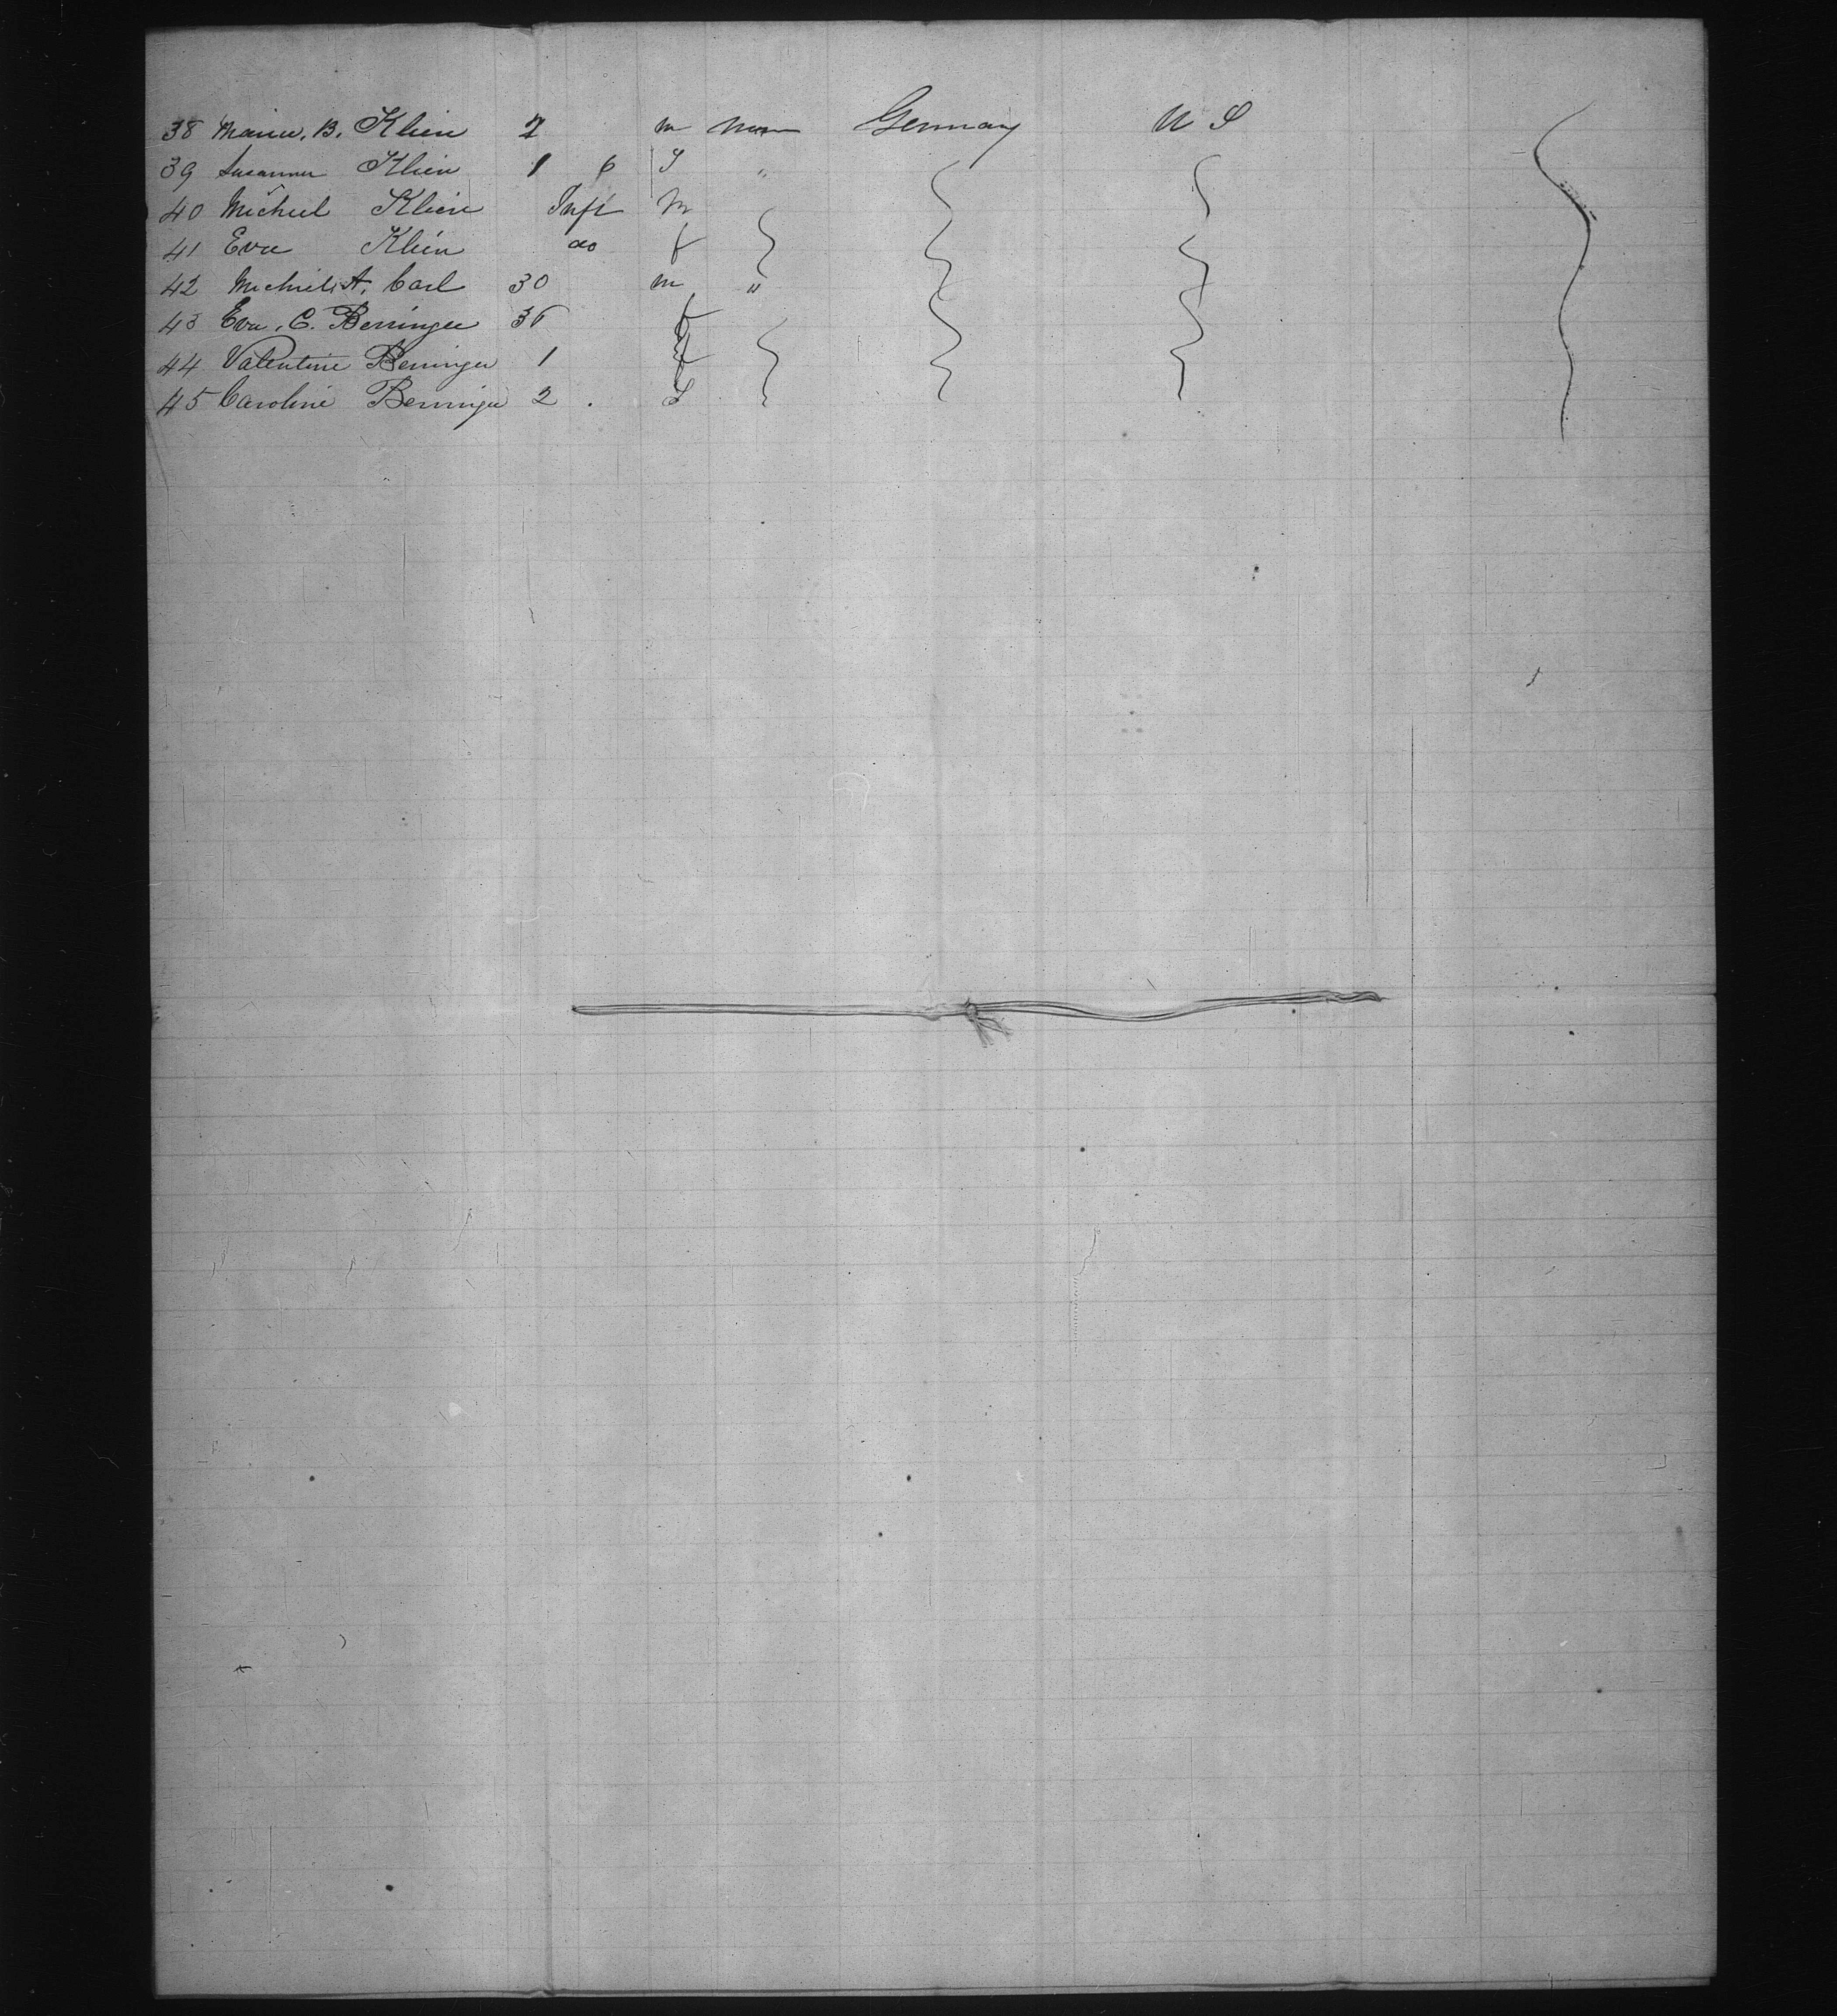 38 B. Klein 2 m Germany U S
39 Susanna Klein 1 6 f "
40 Michael Klein Inft M
41 Eva Klein do f
42 A. Carl 30 m "
43 Eva. C. Berringer 36 f
44 Valentine Berringer 1 f
45 Caroline Berringer 2 f